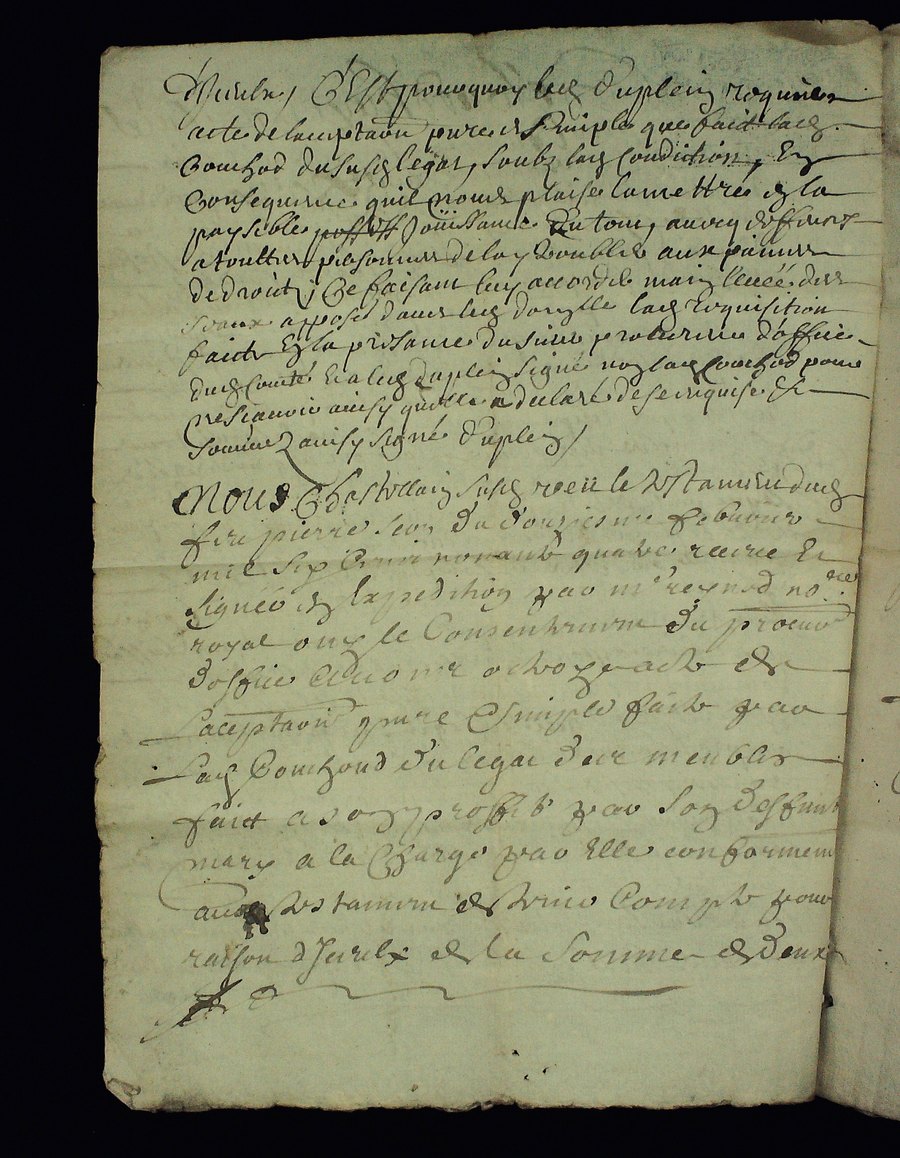 d'Iceulx, C'Est pourquoy led Duplein requiert
acte de lacceptaon pure et simple que fait lad
Couchod du susd legat, soubz lad condiction, En
Consequence quil nous plaise la mettre en la
paysible possess Jouissance du tout, avecq deffences
a touttes personnes de la y troubler aux peines
de droit, Ce faisant luy accorder main levée des
sceaux apposés dans led domylle lad Requisition
faicte En la presance du sieur procureur d'office
dud Comté Et a led Duplein signé non lad Couchod pour
ne scavoir ainsy quelle a declaré de ce enquise &
sommée ainsy signé Duplein /
Nous Chastellain susd veu le testament dud
feu pierre du douziesme febvrier
mil six Cents nonante quatre receu Et
signée en Expedition par mre reynod nore
royal ouy le Consentement du procur
d'office avons octroyé acte de
Laceptaon pure & simple faite par
Lad Couchoud du legat des meubles
fait a son proffit par son deffunt
mary a la Charge par Elle conformem
aud testament de tenir Compte pour
raison d'Iceulx de la Somme de deux